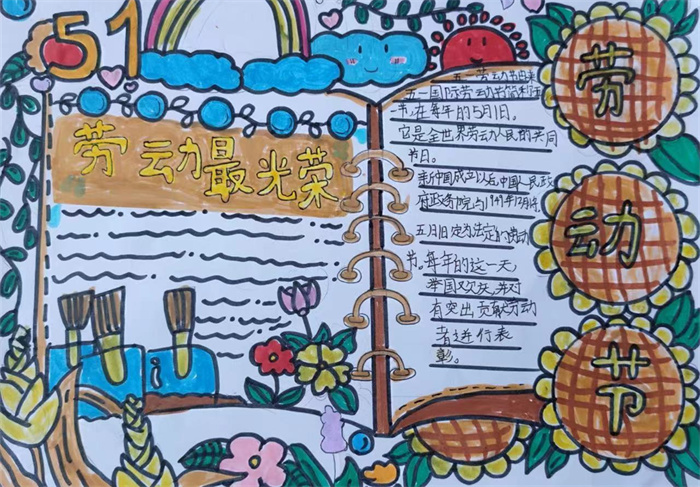 51
劳动最光荣
五一劳动节由来
五一国际劳动节简称五一
节,在每年的5月1日。
它是全世界劳动人民的共同
节日。
新中国成立以后,中国人民政
府政务院于1949年12月
五月1日定为法定的劳动
节。每年的这一天
举国欢庆,并对
有突出贡献劳动
者进行表
彰。
劳
动
节